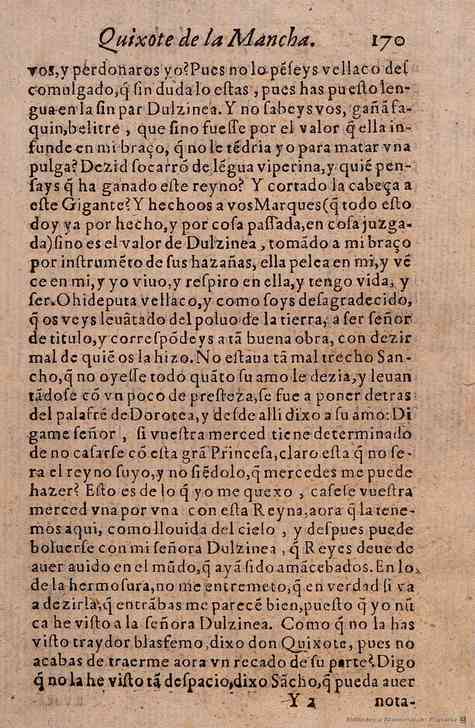 Quixote de la Mancha. 170
vos, y perdonaros yo? Pues no lo pẽseys vellaco des
comulgado, q̃ sin duda lo estas, pues has puesto len-
gua en la sin par Dulzinea. Y no sabeys vos, gañã fa-
quin, belitre, que sino fuesse por el valor q̃ ella in-
funde en mi braço, q̃ no le tẽdria yo para matar vna
pulga? Dezid socarrõ de lẽgua viperina, y quiẽ pen-
says q̃ ha ganado este reyno? Y cortado la cabeça a
este Gigante? Y hechoos a vos Marques (q̃ todo esto
doy ya por hecho, y por cosa passada, en cosa juzga-
da) sino es el valor de Dulzinea, tomãdo a mi braço
por instrumẽto de sus hazañas, ella pelea en mi, y vẽ
ce en mi, y yo viuo, y respiro en ella, y tengo vida, y
ser. O hideputa vellaco, y como soys desagradecido,
q̃ os veys leuãtado del poluo de la tierra, a ser señor
de titulo, y correspõdeys a tã buena obra, con dezir
mal de quiẽ os la hizo. No estaua tã mal trecho San-
cho, q̃ no oyesse todo quãto su amo le dezia, y leuan
tãdose cõ vn poco de presteza, se fue a poner detras
del palafrẽ de Dorotea, y desde alli dixo a su amo: Di
game señor, si vuestra merced tiene determinado
de no casarse cõ esta grã Princesa, claro esta q̃ no se-
ra el reyno suyo, y no siẽdolo, q̃ mercedes me puede
hazer? Esto es de lo q̃ yo me quexo, casese vuestra
merced vna por vna con esta Reyna, aora q̃ la tene-
mos aqui, como llouida del cielo, y despues puede
boluerse con mi señora Dulzinea, q̃ Reyes deue de
auer auido en el mũdo, q̃ ayã sido amãcebados. En lo
de la hermosura, no me entremeto, q̃ en verdad si va
a dezirla, q̃ entrãbas me parecẽ bien, puesto q̃ yo nũ
ca he visto a la señora Dulzinea. Como q̃ no la has
visto traydor blasfemo, dixo don Quixote, pues no
acabas de traerme aora vn recado de su parte? Digo
q̃ no la he visto tã despacio, dixo Sãcho, q̃ pueda auer
Y 2 nota-